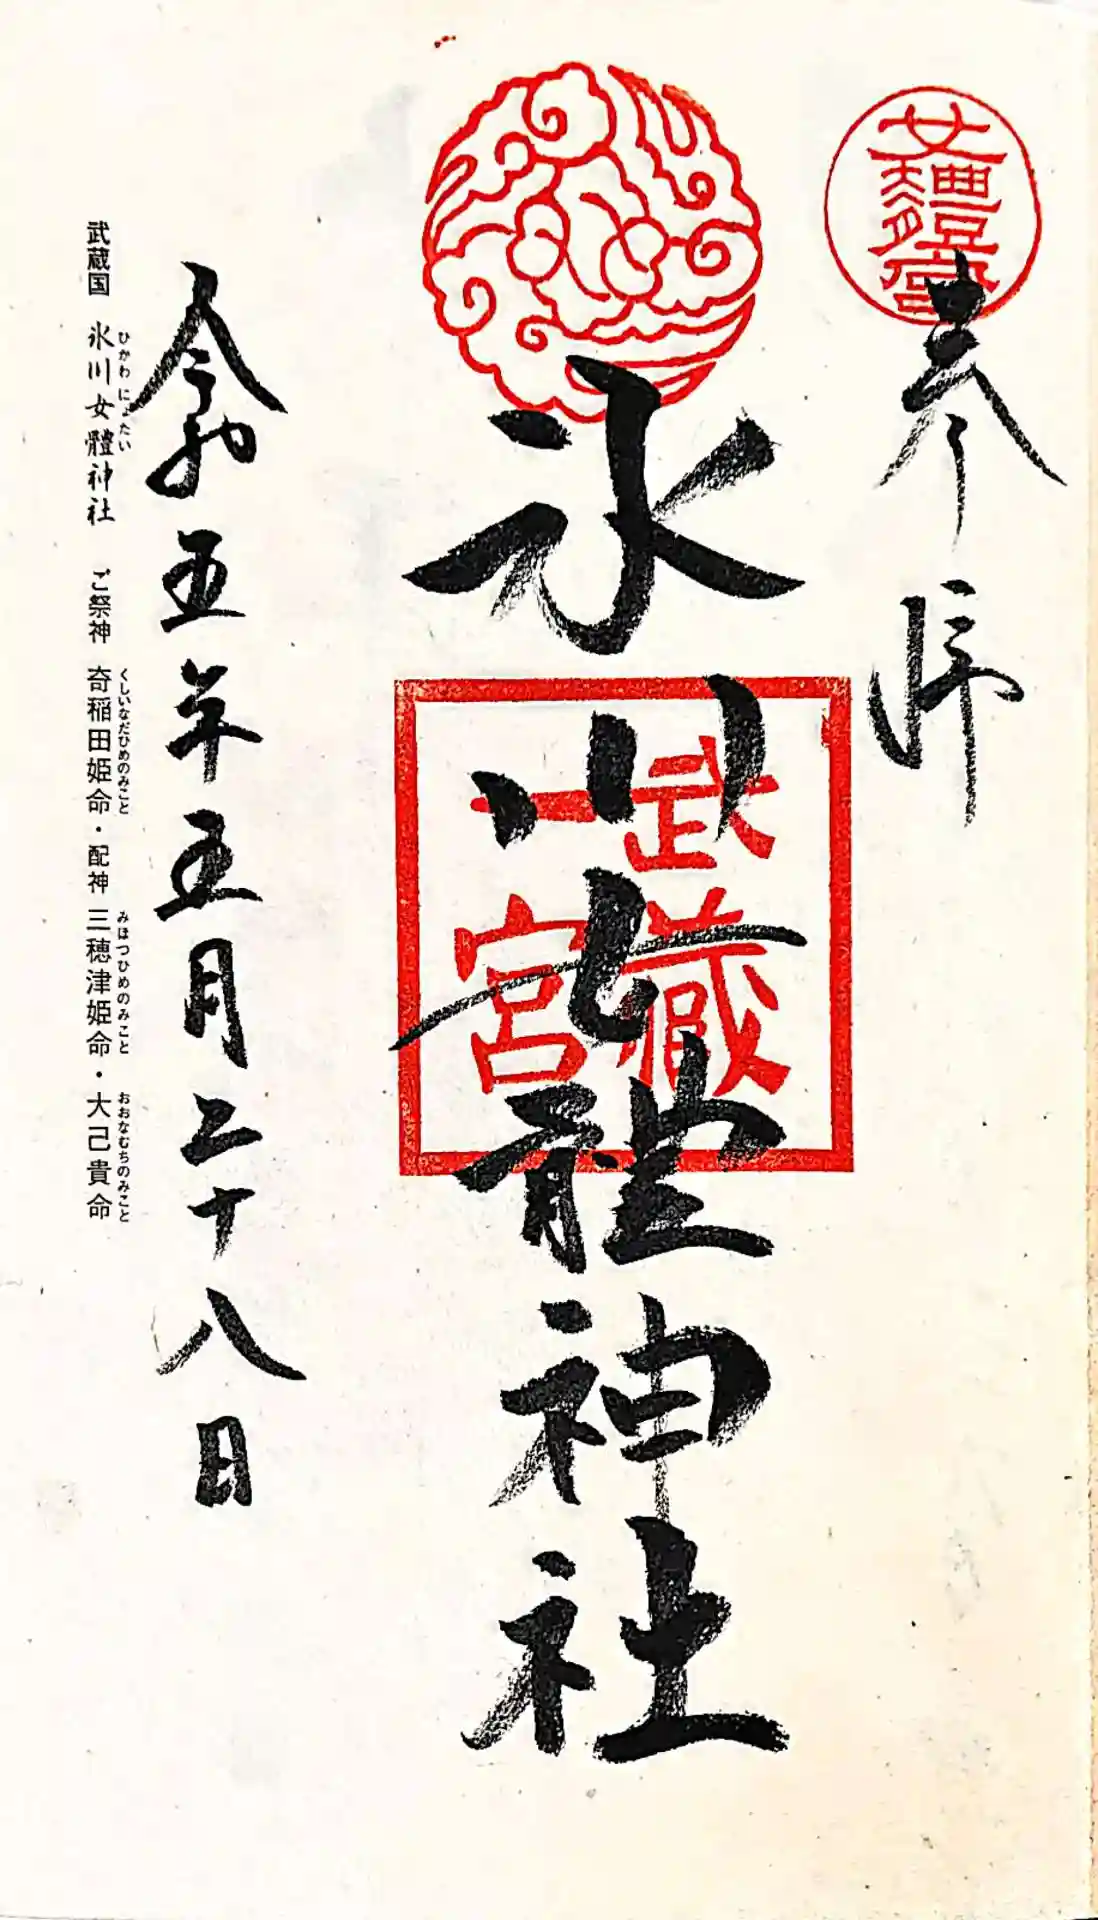 女體宮
奉拝
武蔵
一宮
氷川女體神社
令和五年五月二十八日
武蔵国 氷川女體神社 ご祭神 奇稲田姫命・配神 三穂津姫命・大己貴命
ひかわにょたい くしいなだひめのみこと みほつひめのみこと おおなむちのみこと